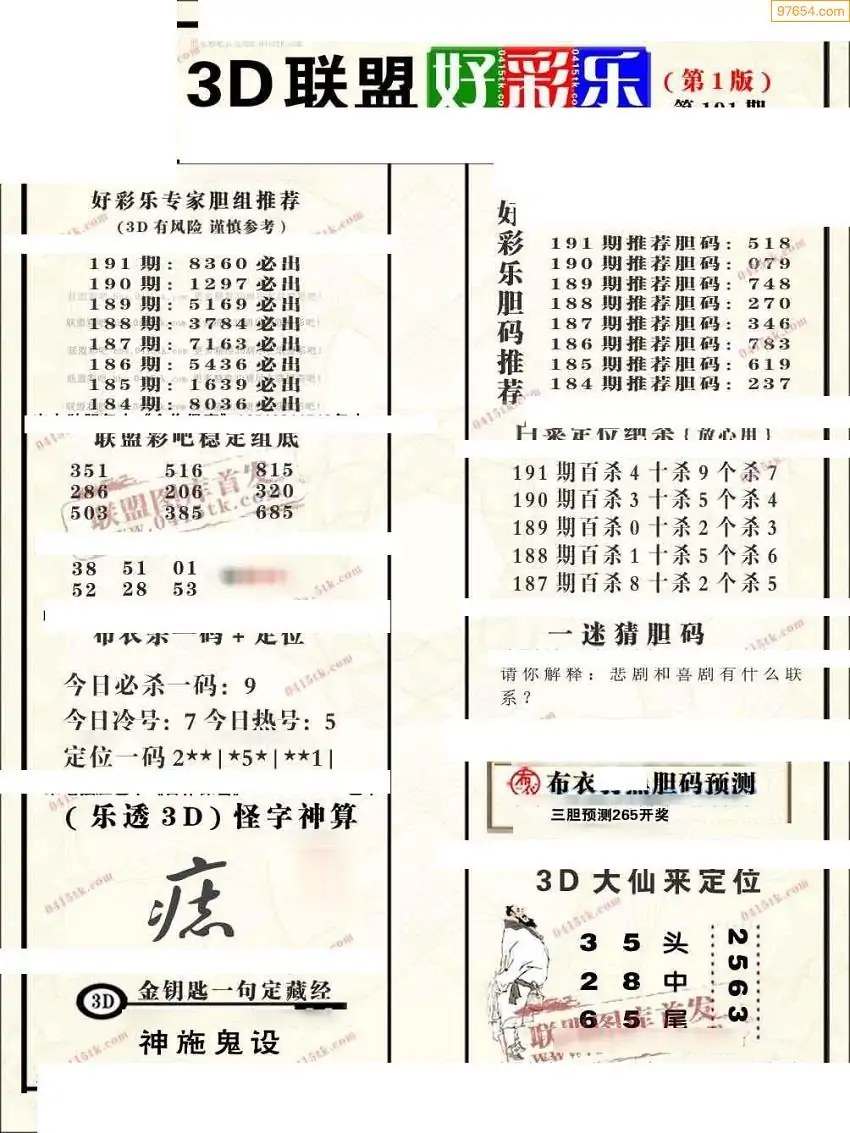 97654.com
3D联盟好彩乐(第1版)
第191期
好彩乐专家胆组推荐
(3D有风险 谨慎参考)
191期: 8360必出
190期: 1297必出
189期: 5169必出
188期: 3784必出
187期: 7163必出
186期: 5436必出
185期: 1639必出
184期: 8036必出
联盟彩吧稳定组底
351 516 815
286 206 320
503 385 685
38 51 01
52 28 53
布衣杀一码+定位
今日必杀一码: 9
今日冷号: 7 今日热号: 5
定位一码 2**|*5*|**1|
(乐透3D)怪字神算
痣
3D 金钥匙一句定藏经
神施鬼设
好彩乐胆码推荐
191期推荐胆码: 518
190期推荐胆码: 079
189期推荐胆码: 748
188期推荐胆码: 270
187期推荐胆码: 346
186期推荐胆码: 783
185期推荐胆码: 619
184期推荐胆码: 237
191期百杀4十杀9个杀7
190期百杀3十杀5个杀4
189期百杀0十杀2个杀3
188期百杀1十杀5个杀6
187期百杀8十杀2个杀5
一迷猜胆码
请你解释: 悲剧和喜剧有什么联
系?
布衣 胆码预测
三胆预测265开奖
3D大仙来定位
3 5 头
2 8 中
6 5 尾
2563
联盟图库首发
www.0415tk.com
0415tk.com